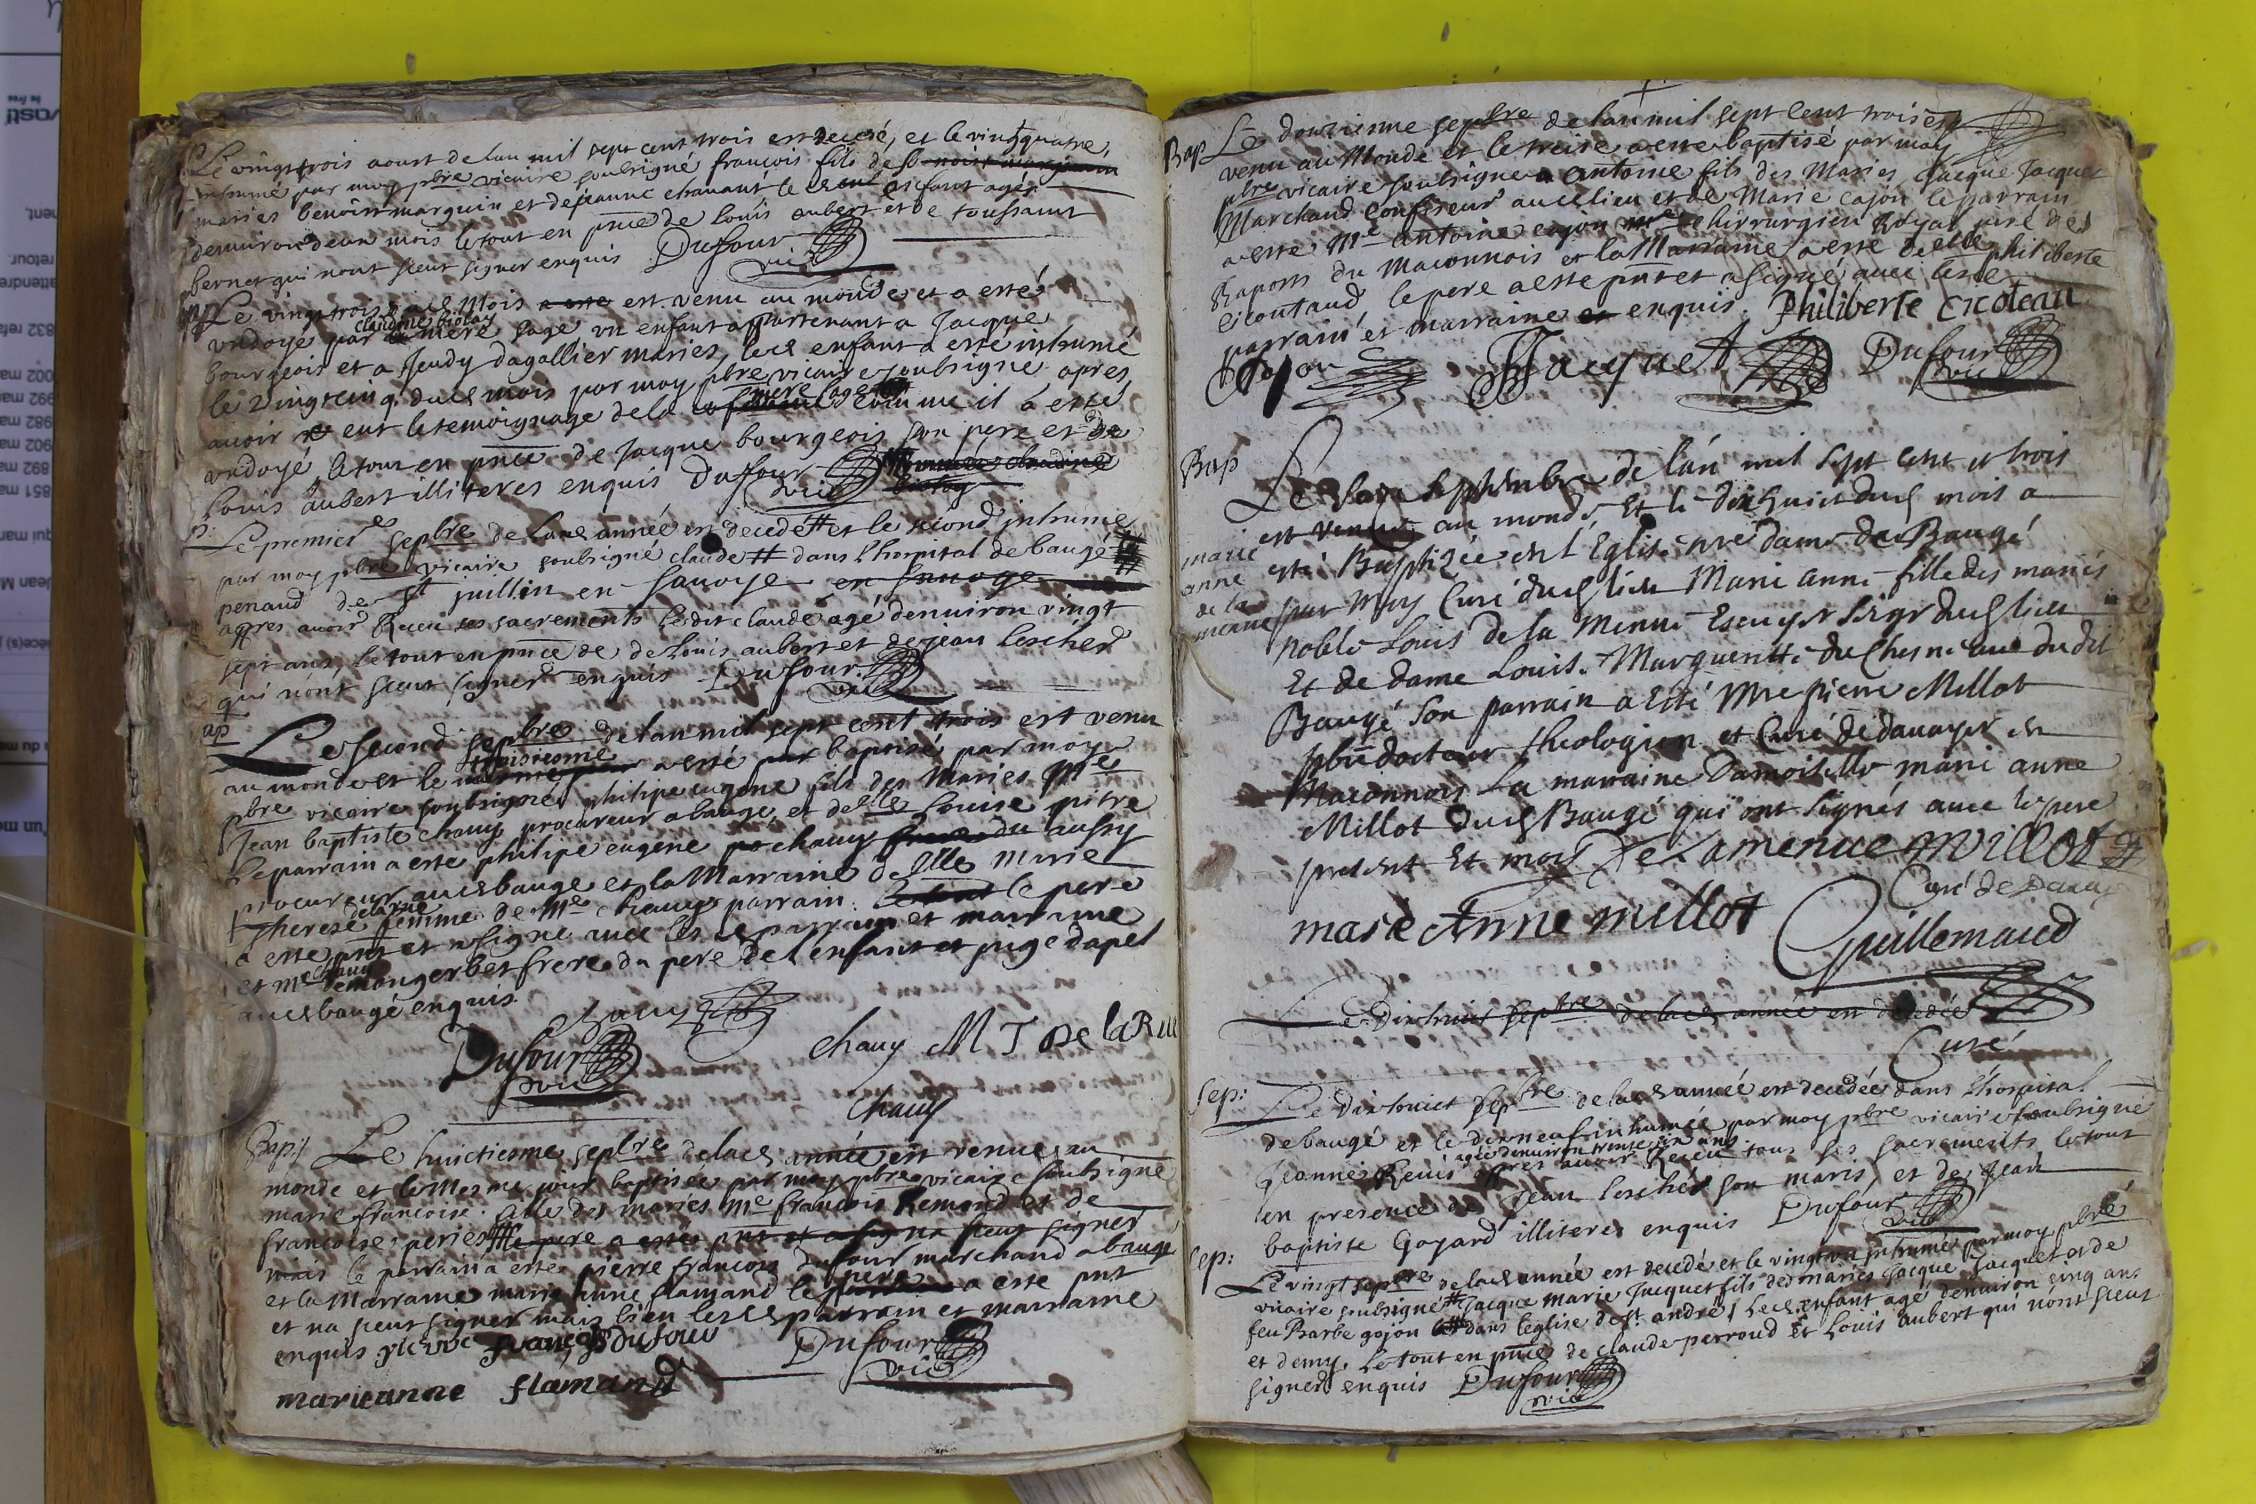 Le vingt trois aoust de lan mil sept cent trois est decedé, et le vingt quatre,
inhumé par moy pbre vicaire soubsigné, françois fils des
maries benoist marguin et de jeanne chanant led enfant agé
denuiron deux mois le tout en pnce de Louis aubert et de toussaint
bernet qui nont sceut signer enquis Dufour vic
Le vingt trois dud mois est venu au monde et a esté
claudine biolay
vndoyé par mere sage vn enfant appartenant a Jacque
bourgeois et a Judy dagallier maries, led enfant a esté inhumé
le vingt cinq dud mois par moy pbre vicaire soubsigné apres
mere sage
auoir eut le temoignage de la comme il a esté
vndoyé, le tout en pnce de Jacque bourgeois son pere et de
Louis aubert illiteres enquis Dufour vic
Le premier sepbre de lad année est decedé et le second inhumé
par moy pbre vicaire soubsigné claude # dans l'hospital de baugé
penaud de st juillin en sauoye
apres auoir Receu ses sacrements ledit claude agé denuiron vingt
sept ans, le tout en pnce de de Louis aubert et de jean lescher
qui n'ont sceut signer enquis Dufour vic
ap
Le second sepbre de lan mil sept cent trois est venu
troisiesme
au monde et le a esté baptisé par moy
pbre vicaire soubsigné, philipe eugene fils des Maries Me
Jean baptiste chauy procureur a baugé, et de delle Louise pitre
le parrain a este philipe eugene chauy du aussy
procureur aud baugé et la Marraine delle Marie
delarue
Therese femme de Me chauy parrain le pere
a este pnt et a signe auec lesd parrain et marraine
chauy
et Me demongerbet frere du pere de l'enfant et juge dapel
aud baugé enquis
chauy
Dufour vic
chauy M T De laRue
chauy
Bap:
Le huictiesme sepbre de lad année est venue au
monde et le mesme jour baptisée par moy pbre vicaire soubsigne
marie francoise fille des maries Me francois Remond et de
francoise peries
mais le parrain a este pierre francois dufour marchand a baugé
et la Marraine marie anne flamand le pere a este pnt
et na sceut signer mais bien lesd parrain et marraine
enquis pierre françois Dufour Dufour vic
marieanne flamand
Bap
Le douziesme sepbre de lan mil sept cent trois est
venu au Monde et le treise a este baptisé par moy
pbre vicaire soubsigne antoine fils des Maries Jacque Jacquet
Marchand confiseur aud lieu et de Marie cajon le parrain
a este Me antoine cajon chirurgien Royal juré des
Raports du maconnois et la Marraine a este delle philiberte
cicoutaud le pere a este pnt et a signé auec lesd
parrain et marraine enquis. Philiberte cicoteau
Cajon Jacquet Dufour vic
Bap
marie
anne
de la
menue
Le septembre de l'an mil sept cent et trois
est venüe au monde Et le dix huict dud mois a
esté Baptizée en l'Eglise nre dame de Baugé
par moy Curé dud lieu Marie anne fille des mariés
noble Louis de la menue Escuyer sgr dud lieu
Et de dame Louise Marguerite du Chesne dudit
Baugé son parrain a esté Mre pierre Millot
pbre docteur theologien et Curé de dauayer en
Maconnois La marraine Damoiselle marie anne
Millot dud Baugé qui ont signés auec le pere
present Et moy De Lamenue Millot
Curé de Dauayé
marie Anne millot Guillemaud
Curé
Le Dixhuict sepbre de lad année est decedée
Sep:
Le dixhuict sepbre de lad année est decedée dans l'hospital
de baugé et le dixneuf inhumée par moy pbre vicaire soubsigne
agée denuiron trente six ans
Jeanne Reuis apres auoir Receu tous ses sacrements le tout
en presence de jean lescher son maris, et de Jean
baptiste Goyard illiteres enquis Dufour vic
Sep:
Le vingt sepbre de lad année est decedé et le vingt vn inhumé par moy pbre
vicaire soubsigné # Jacque marie Jacquet fils des maries Jacque Jacquet et de
feu Barbe gojon # dans l'eglise de st andré, led enfant agé denuiron cinq ans
et demy. le tout en pnce de claude perroud et Louis aubert qui n'ont sceut
signer enquis Dufour vic